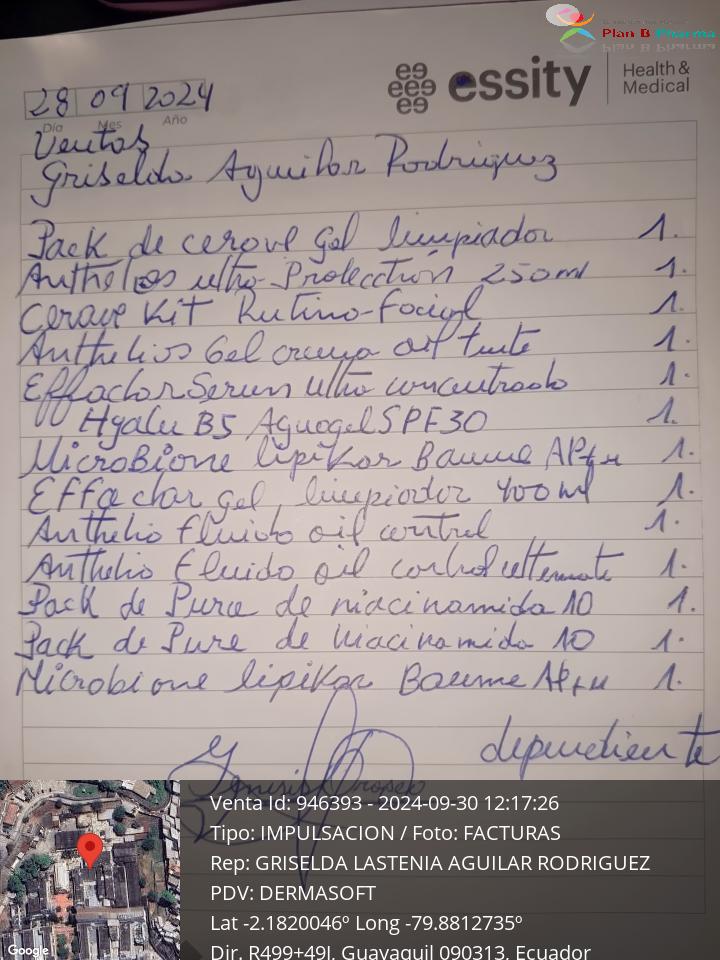 Plan B Pharma
28 09 2024
Día Mes Año
essity
Health &
Medical
Ventas
Griselda Aguilar Rodriguez
Pack de cerave gel limpiador 1.
Anthelios ultra-Protección 250ml 1.
Cerave Kit Rutina-Facial 1.
Anthelios Gel crema oil tinte 1.
Effaclar Serum ultra concentrado 1.
Hyalu B5 Aquagel SPF30 1.
MicroBione lipikar Baume AP+M 1.
Effaclar gel limpiador 400ml 1.
Anthelio fluido oil control 1.
Anthelio fluido oil control 1.
Pack de Pure de niacinamida 10 1.
Pack de Pure de Niacinamida 10 1.
Microbione lipikar Baume AP+M 1.
dependiente
Venta Id: 946393 - 2024-09-30 12:17:26
Tipo: IMPULSACION / Foto: FACTURAS
Rep: GRISELDA LASTENIA AGUILAR RODRIGUEZ
PDV: DERMASOFT
Lat -2.1820046º Long -79.8812735º
Dir. R499+49J, Guayaquil 090313, Ecuador
Google